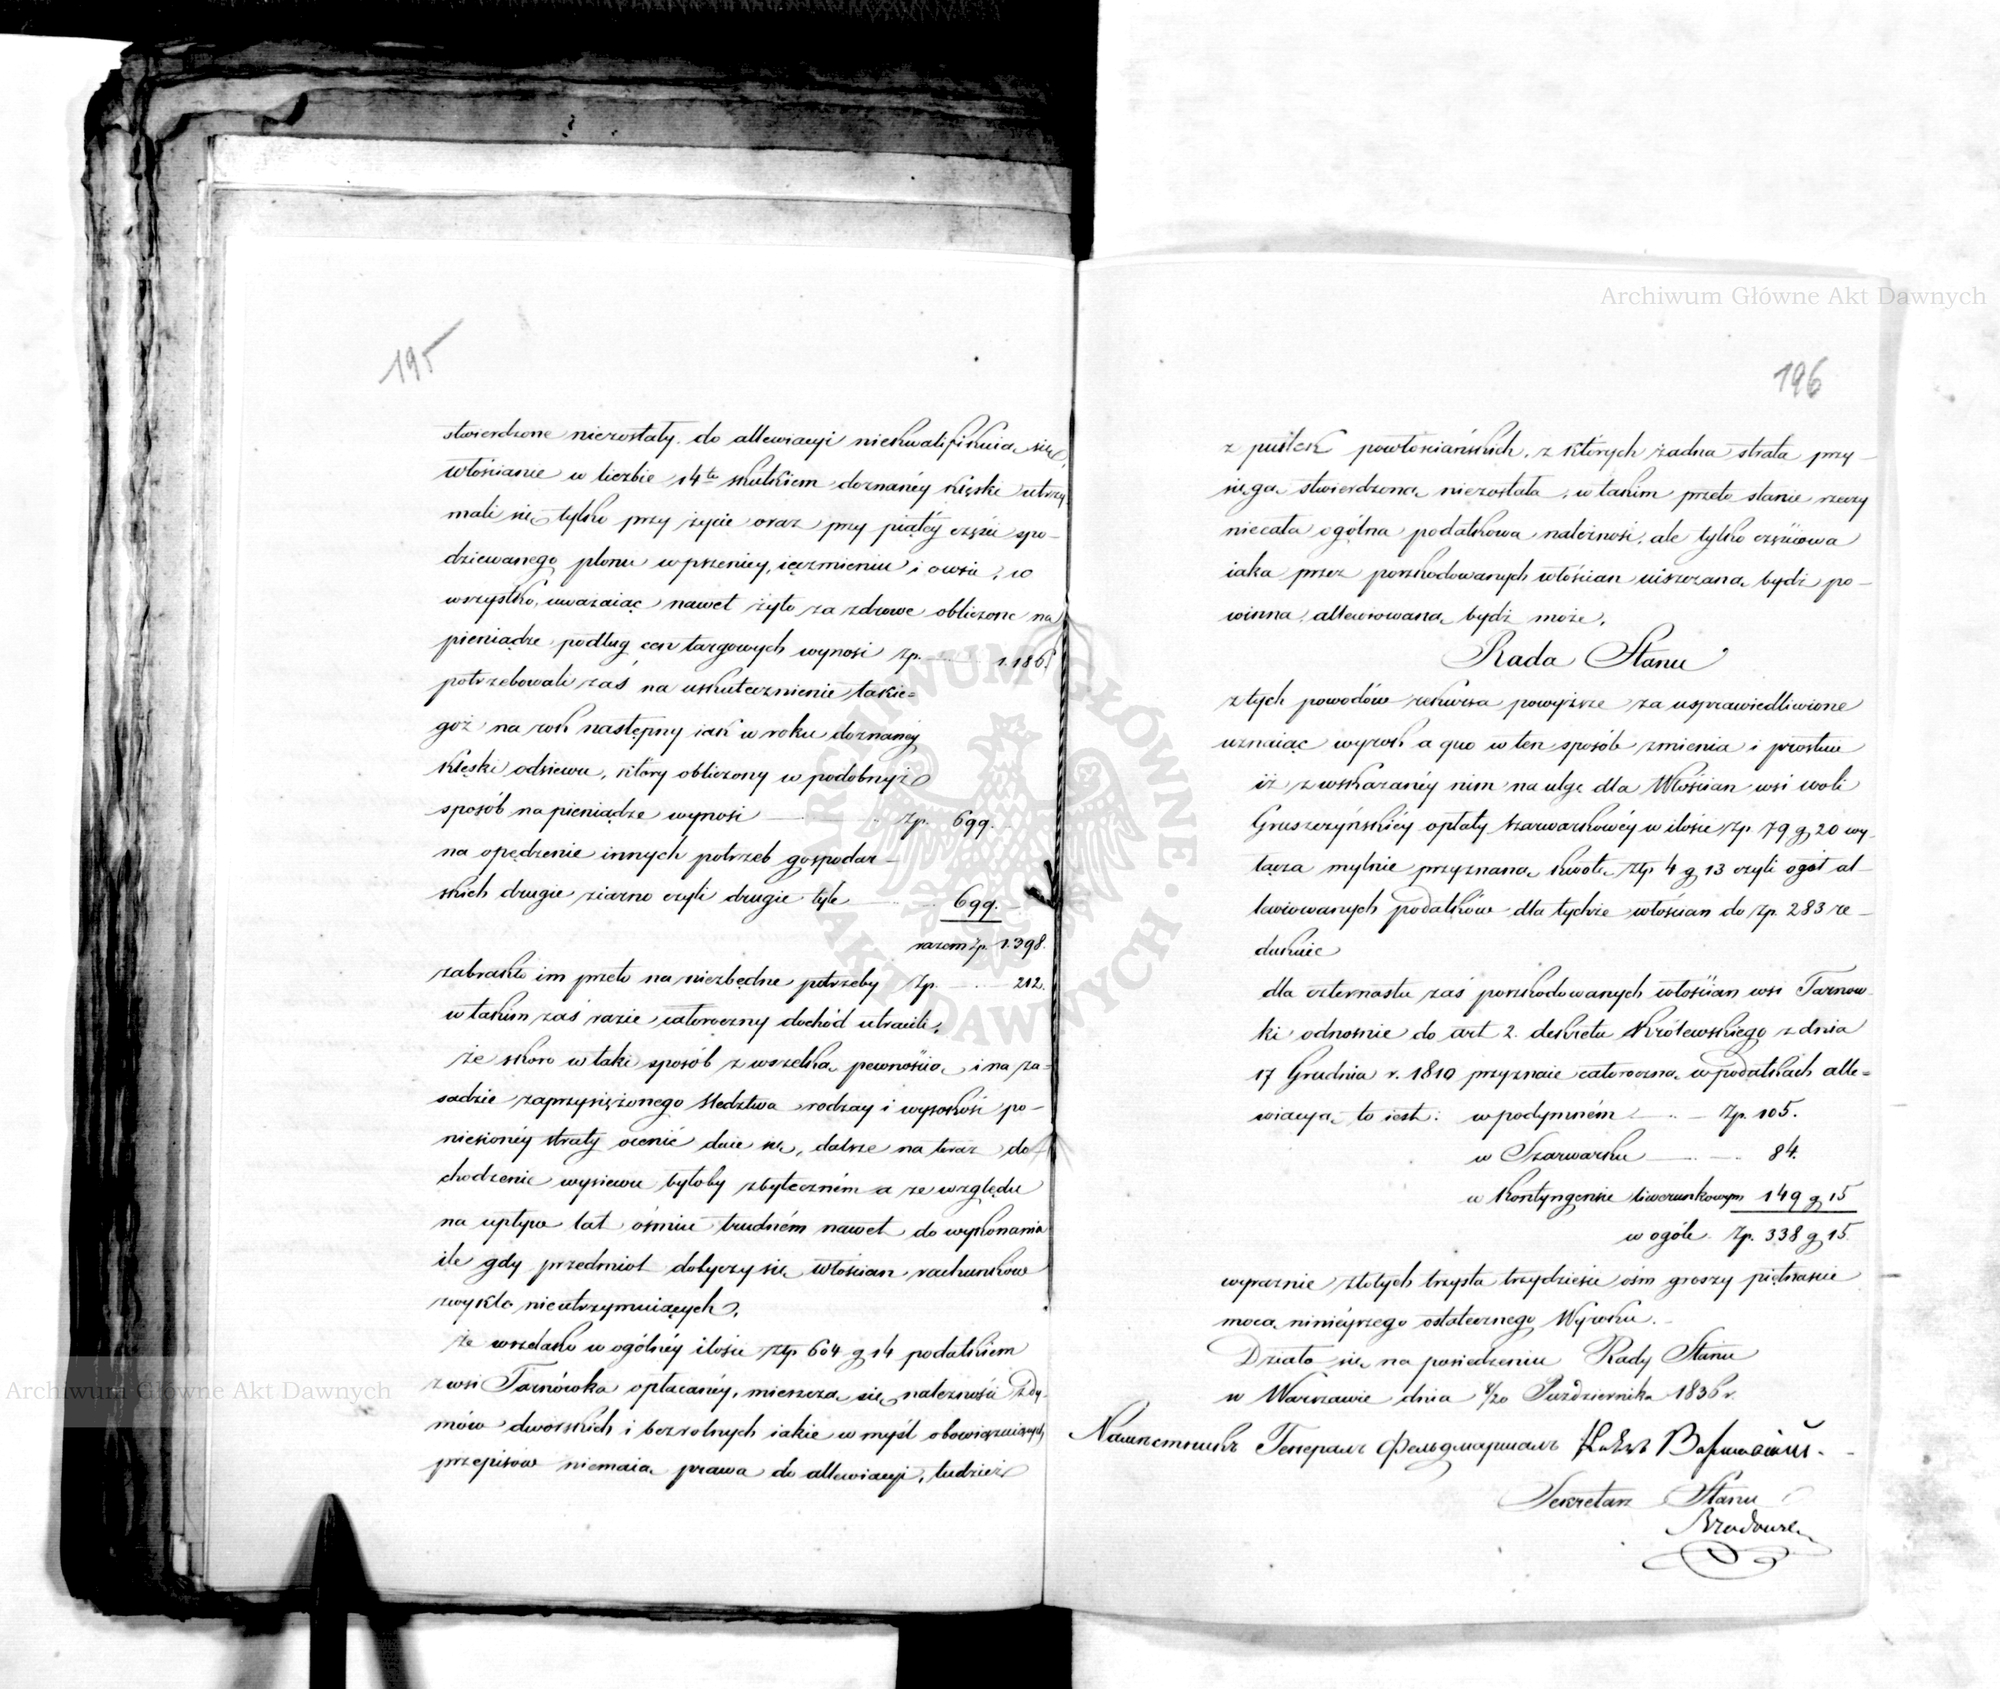 195
stwierdzone niezostały. do allewiacyi niekwalifikuią się,
włościanie w liczbie 14tu skutkiem doznanéy klęski utrzy
mali się tylko przy życie oraz przy piątéy części spo-
dziewanego plonu w pszenicy, ięczmieniu i owsie, co
wszystko, uważaiąc nawet żyto za zdrowe obliczone na
pieniądze podług cen targowych wynosi Zp. 1.186.
potrzebowali zaś na uskutecznienie takie=
goż na rok następny iak w roku doznanéy
klęski odsiewu, który obliczony w podobnyż
sposób na pieniądze wynosi Zp. 699.
na opędzenie innych potrzeb gospodar-
skich drugie ziarno czyli drugie tyle 699.
razem Zp. 1.398.
zabrakło im przeto na niezbędne potrzeby Zp. 212.
w takim zaś razie całoroczny dochód utracili.
że skoro w taki sposób z wszelką pewnością i na za=
sadzie zaprzysiężonego śledztwa rodzay i wysokość po-
niesionéy straty ocenić daie się, dalsze na teraz do
chodzenie wysiewu byłoby zbyteczném a ze względu
na upływ lat ośmiu trudném nawet do wykonania
ile gdy przedmiot dotyczy się włościan rachunków
zwykle nieutrzymuiących.
że wszelako w ogólnéy ilości złp 604 g 14 podatkiem
z wsi Tarnówka opłacanéy, mieszczą się należności z dy-
mów dworskich i bezrolnych iakie w myśl obowiązuiących
przepisów niemaią prawa do allewiacyi, tudzież
196
z pustek powłościańskich, z których żadna strata przy-
sięgą stwierdzoną niezostała, w takim przeto stanie rzeczy
niecała ogólna podatkowa należność, ale tylko częściowa
iaka przez poszkodowanych włościan uiszczaną bydź po-
winna, allewiowaną bydź może.
Rada Stanu
z tych powodów rekursa powyższe za usprawiedliwione
uznaiąc wyrok a quo w ten sposób zmienia i prostuie
iż z wskazanéy nim na ulgę dla Włościan wsi woli
Gruszczyńskiéy opłaty szarwarkowéy w ilości Zp. 79 g 20 wy-
łącza mylnie przyznaną kwotę złp 4 g 13 czyli ogół al-
lewiowanych podatków dla tychże włościan do Zp. 283 re-
dukuie
dla czternastu zaś poszkodowanych włościan wsi Tarnow-
ki odnośnie do art 2. dekretu Królewskiego z dnia
17 Grudnia r. 1810 przyznaie całoroczną w podatkach alle=
wiacyą to iest: w podymném Zp. 105.
w Szarwarku 84.
w Kontyngensie liwerunkowym 149 g 15
w ogóle Zp. 338 g 15.
wyraznie złotych trzysta trzydzieści ośm groszy piętnaście
mocą ninieyszego ostatecznego Wyroku.
Działo się na posiedzeniu Rady Stanu
w Warszawie dnia 8/20 Października 1836 r.
Намѣстникъ Генералъ Фельдмаршалъ
Sekretarz Stanu
Archiwum Główne Akt Dawnych
Archiwum Główne Akt Dawnych
ARCHIWUM GŁÓWNE · AKT DAWNYCH ·